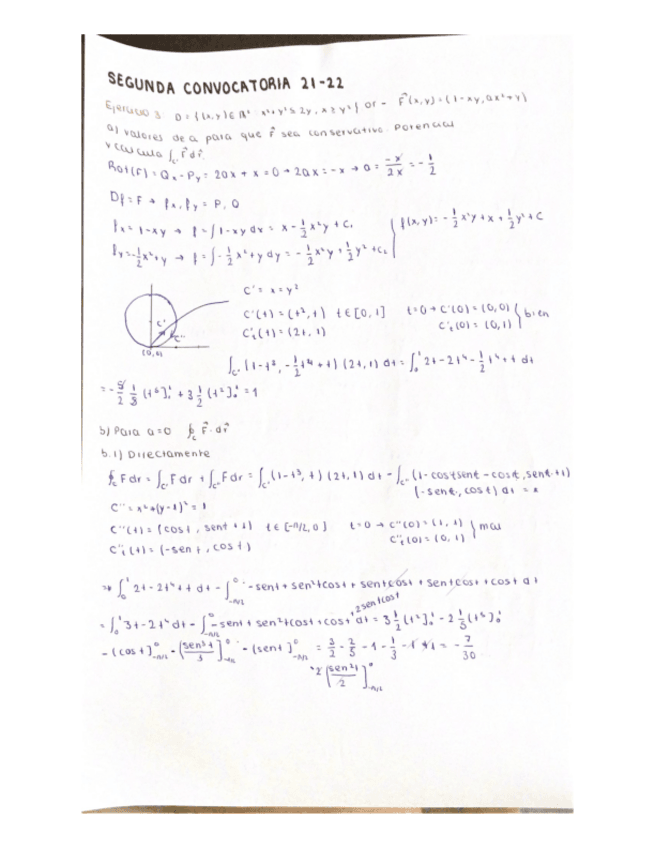 SEGUNDA CONVOCATORIA 21-22
Ejercicio 3: D = {(x,y) ∈ ℝ² : x²+y² ≤ 2y, x ≥ y²} F⃗(x,y) = (1-xy, ax²+y)
a) valores de a para que F⃗ sea conservativo. Potencial
y calcula ∫c' F⃗ dr⃗.
Rot(F) = Qx - Py = 2ax + x = 0 → 2ax = -x → a = -x/2x = -1/2
Df = F → fx, fy = P, Q
fx = 1-xy → f = ∫1-xy dx = x - 1/2 x²y + C₁
fy = -1/2 x²+y → f = ∫-1/2 x²+y dy = -1/2 x²y + 1/2 y² + C₂
f(x,y) = -1/2 x²y + x + 1/2 y² + C
C' = x = y²
C'(t) = (t², t) t ∈ [0,1] t=0 → C'(0) = (0,0)
C't(t) = (2t, 1) C't(0) = (0,1) } bien
C'
C''
(0,0)
∫c' (1-t³, -1/2 t⁴+t) (2t,1) dt = ∫₀¹ 2t - 2t⁴ - 1/2 t⁴ + t dt
= -5/2 1/5 (t⁵]₀¹ + 3 1/2 (t²]₀¹ = 1
b) Para a=0 ∮c F⃗·dr⃗
b.1) Directamente
∮c F dr = ∫c' F dr + ∫c'' F dr = ∫c' (1-t³, t) (2t,1) dt - ∫c'' (1-cost sent - cost, sent+1)
(-sent, cost) dt = *
C'' = x²+(y-1)² = 1
C''(t) = (cost, sent+1) t ∈ [-π/2, 0] t=0 → C''(0) = (1,1)
C''t(t) = (-sent, cost) C''t(0) = (0,1) } mal
∫₀¹ 2t - 2t⁴ + t dt - ∫-π/2⁰ -sent + sen²t cost + sent cost + sent cost + cost dt
+2sentcost
= ∫₀¹ 3t - 2t⁴ dt - ∫-π/2⁰ -sent + sen²t cost + cost dt = 3 1/2 (t²]₀¹ - 2 1/5 (t⁵]₀¹
- (cost]-π/2⁰ - (sen³t/3]-π/2⁰ - (sent]-π/2⁰ = 3/2 - 2/5 - 1 - 1/3 - 1 + 1 = -7/30
-2 [sen²t/2]-π/2⁰